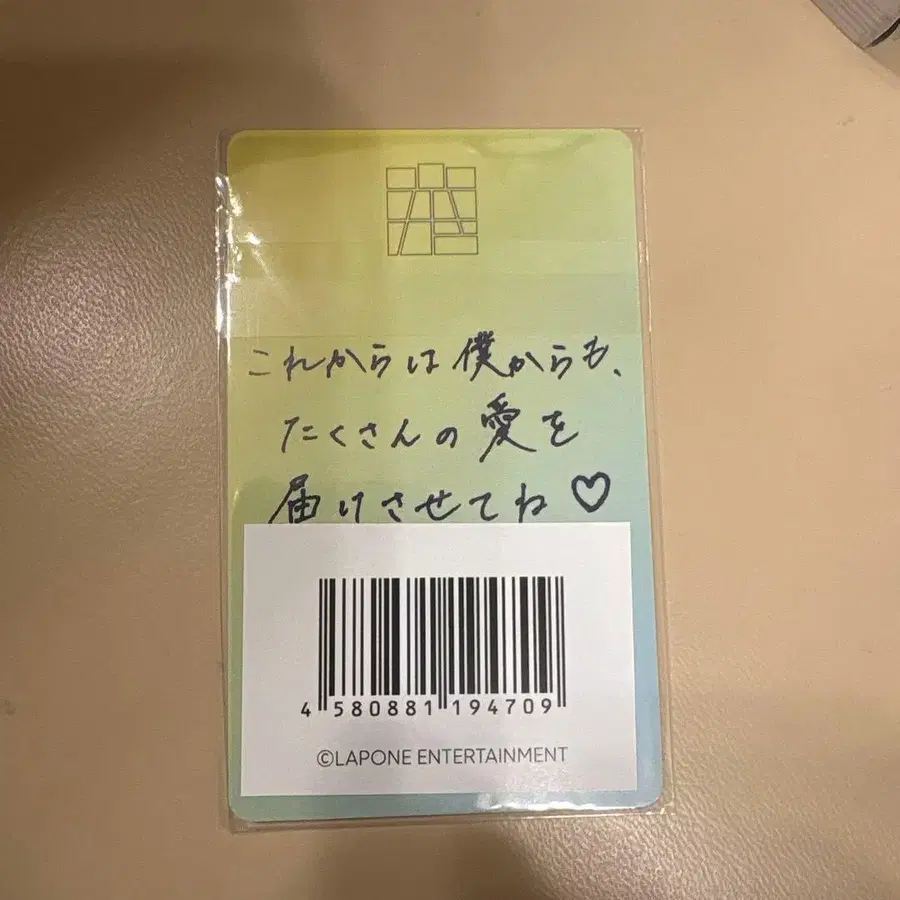 これからは僕からも、
たくさんの愛を
届けさせてね♡
4 580881 194709
©LAPONE ENTERTAINMENT